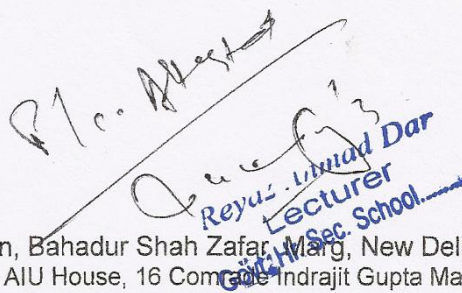 Attested
Reyaz Ahmad Dar
Lecturer
Govt. Hr. Sec. School......
n, Bahadur Shah Zafar, Marg, New Del
AIU House, 16 Comrade Indrajit Gupta Ma